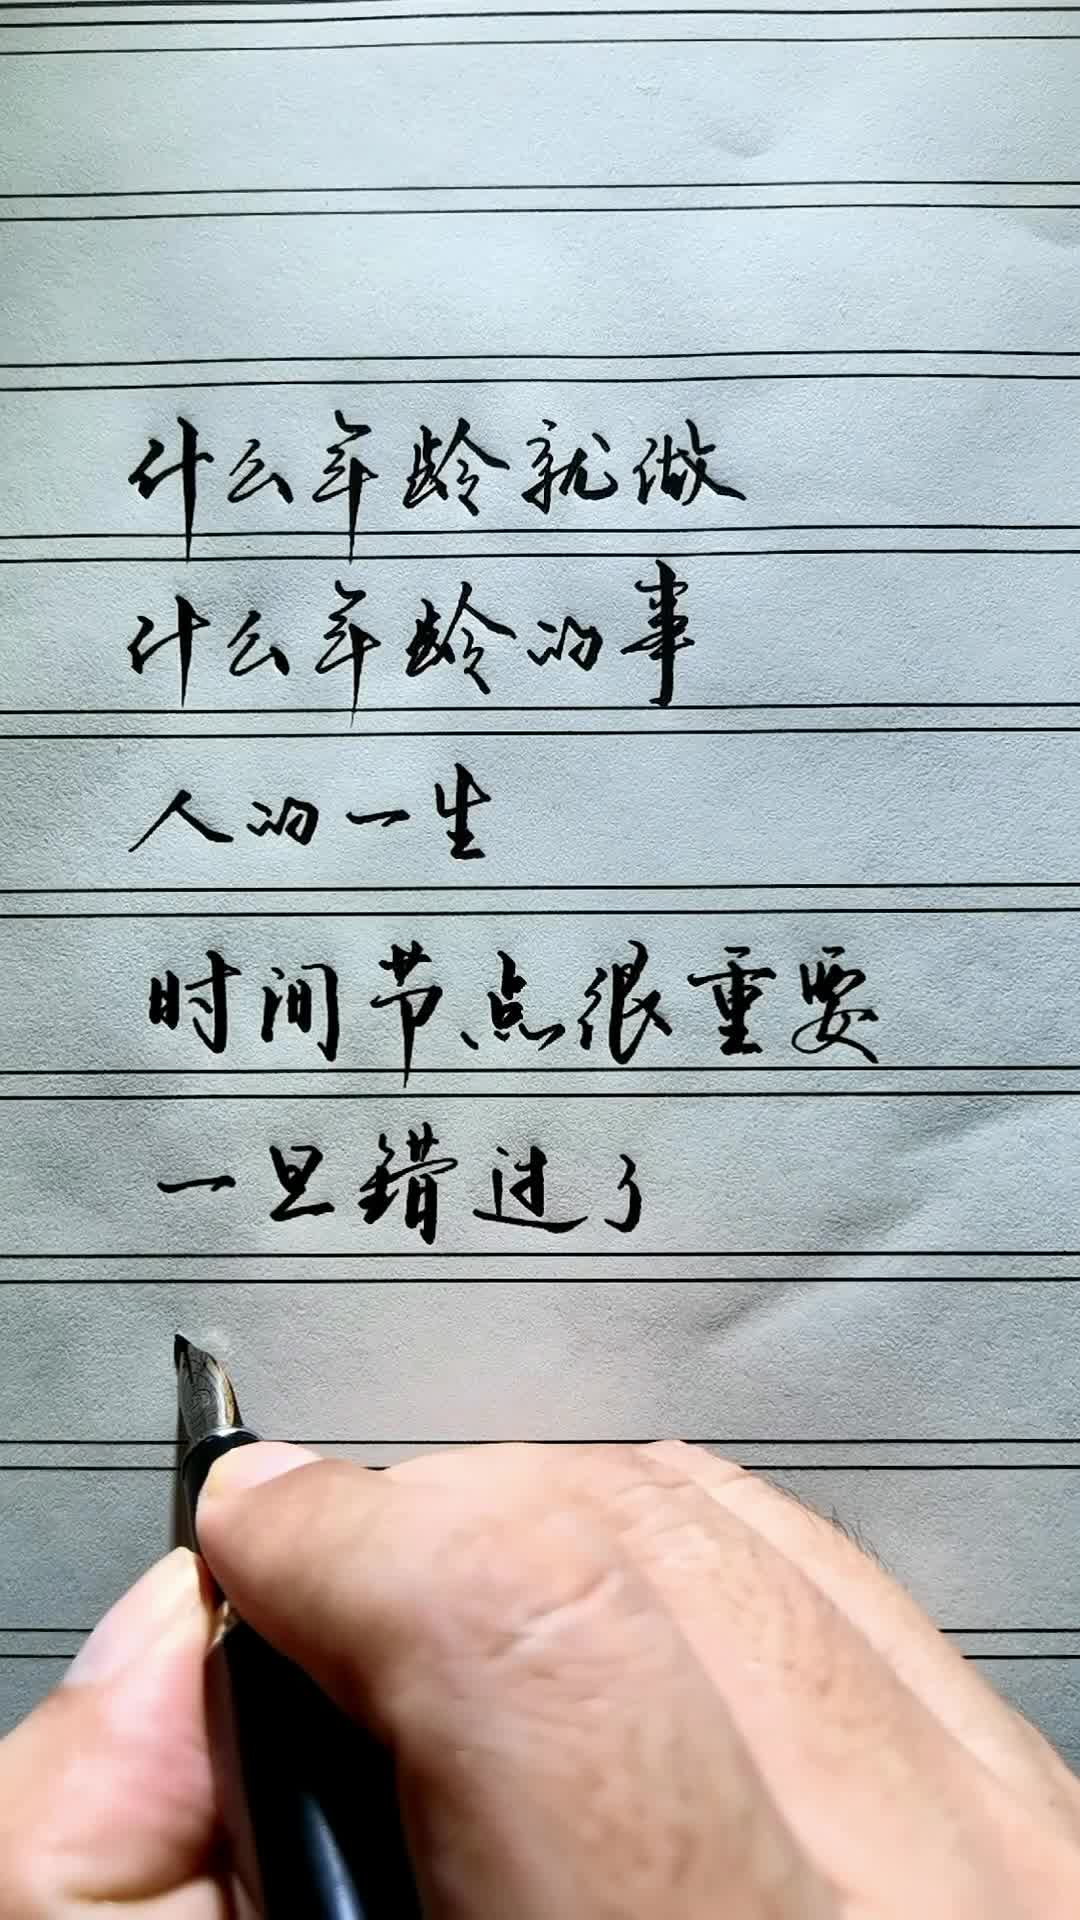 什么年龄就做
什么年龄的事
人的一生
时间节点很重要
一旦错过了